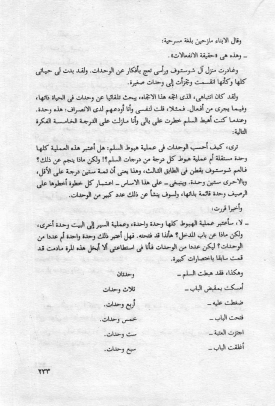 وقال الأبناء مازحين بلغة مسرحية:
ـ .. هذه هي «حقيقة الانفعالات».
وغادرت منزل آل شوستوف ورأسي تعج بأفكار عن الوحدات. ولقد بدت لي حياتي
كلها وكأنها انقسمت وتجزأت إلى وحدات صغيرة.
ولقد كان انتباهي، الذي اتخذ هذا الاتجاه، يبحث تلقائيا عن وحدات في الحياة ذاتها،
وفيما يجري من أفعال. فمثلا، قلت لنفسي وأنا أودعهم لدى الانصراف: هذه وحدة.
وعندما كنت أهبط السلم خطرت على بالي وأنا مازلت على الدرجة الخامسة الفكرة
التالية:
ترى، كيف أحسب الوحدات في عملية هبوط السلم: هل أعتبر هذه العملية كلها
وحدة مستقلة أم عملية هبوط كل درجة من درجات السلم؟! ولكن ماذا ينجم عن ذلك؟
فالعم شوستوف يقطن في الطابق الثالث، وهذا يعني أن ثمة ستين درجة على الأقل،
وبالأحرى ستين وحدة. وينبغي ـ على هذا الاساس ـ اعتبار كل خطوة أخطوها على
الرصيف وحدة قائمة بذاتها، ولسوف ينشأ عن ذلك عدد كبير من الوحدات.
وأخيرا قررت:
ـ لا، سأعتبر عملية الهبوط كلها وحدة واحدة، وعملية السير إلى البيت وحدة أخرى،
ولكن ماذا عن باب المدخل؟ هأنذا قد فتحته. فهل أعتبر ذلك وحدة واحدة أم عددا من
الوحدات؟ ليكن عددا من الوحدات فأنا في استطاعتي ألا أبخل هذه المرة مادمت قد
قمت سابقا باختصارات كبيرة.
وهكذا، فقد هبطت السلم ـ وحدتان
أمسكت بمقبض الباب ـ ثلاث وحدات
ضغطت عليه ـ أربع وحدات.
فتحت الباب ـ خمس وحدات.
اجتزت العتبة ـ ست وحدات.
أغلقت الباب ـ سبع وحدات
٢٣٣